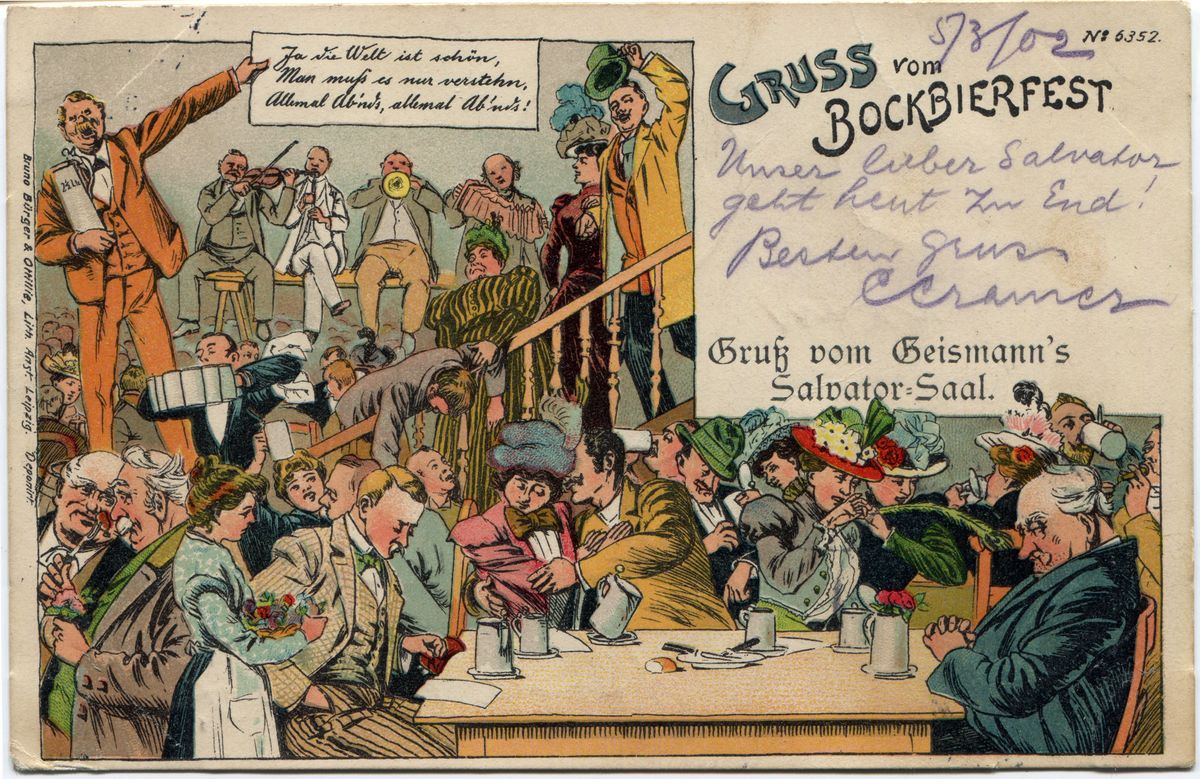 Ja die Welt ist schön,
Man muß es nur verstehn,
Allemal Ab'nds, allemal Ab'nds!
5/3/02
No 6352.
GRUSS vom
BOCKBIERFEST
Unser lieber Salvator
geht heut zu End!
Besten Gruss
CCramer
Gruß vom Geismann's
Salvator-Saal.
Bruno Bürger & Ottillie, Lith. Anst. Leipzig. Deponirt